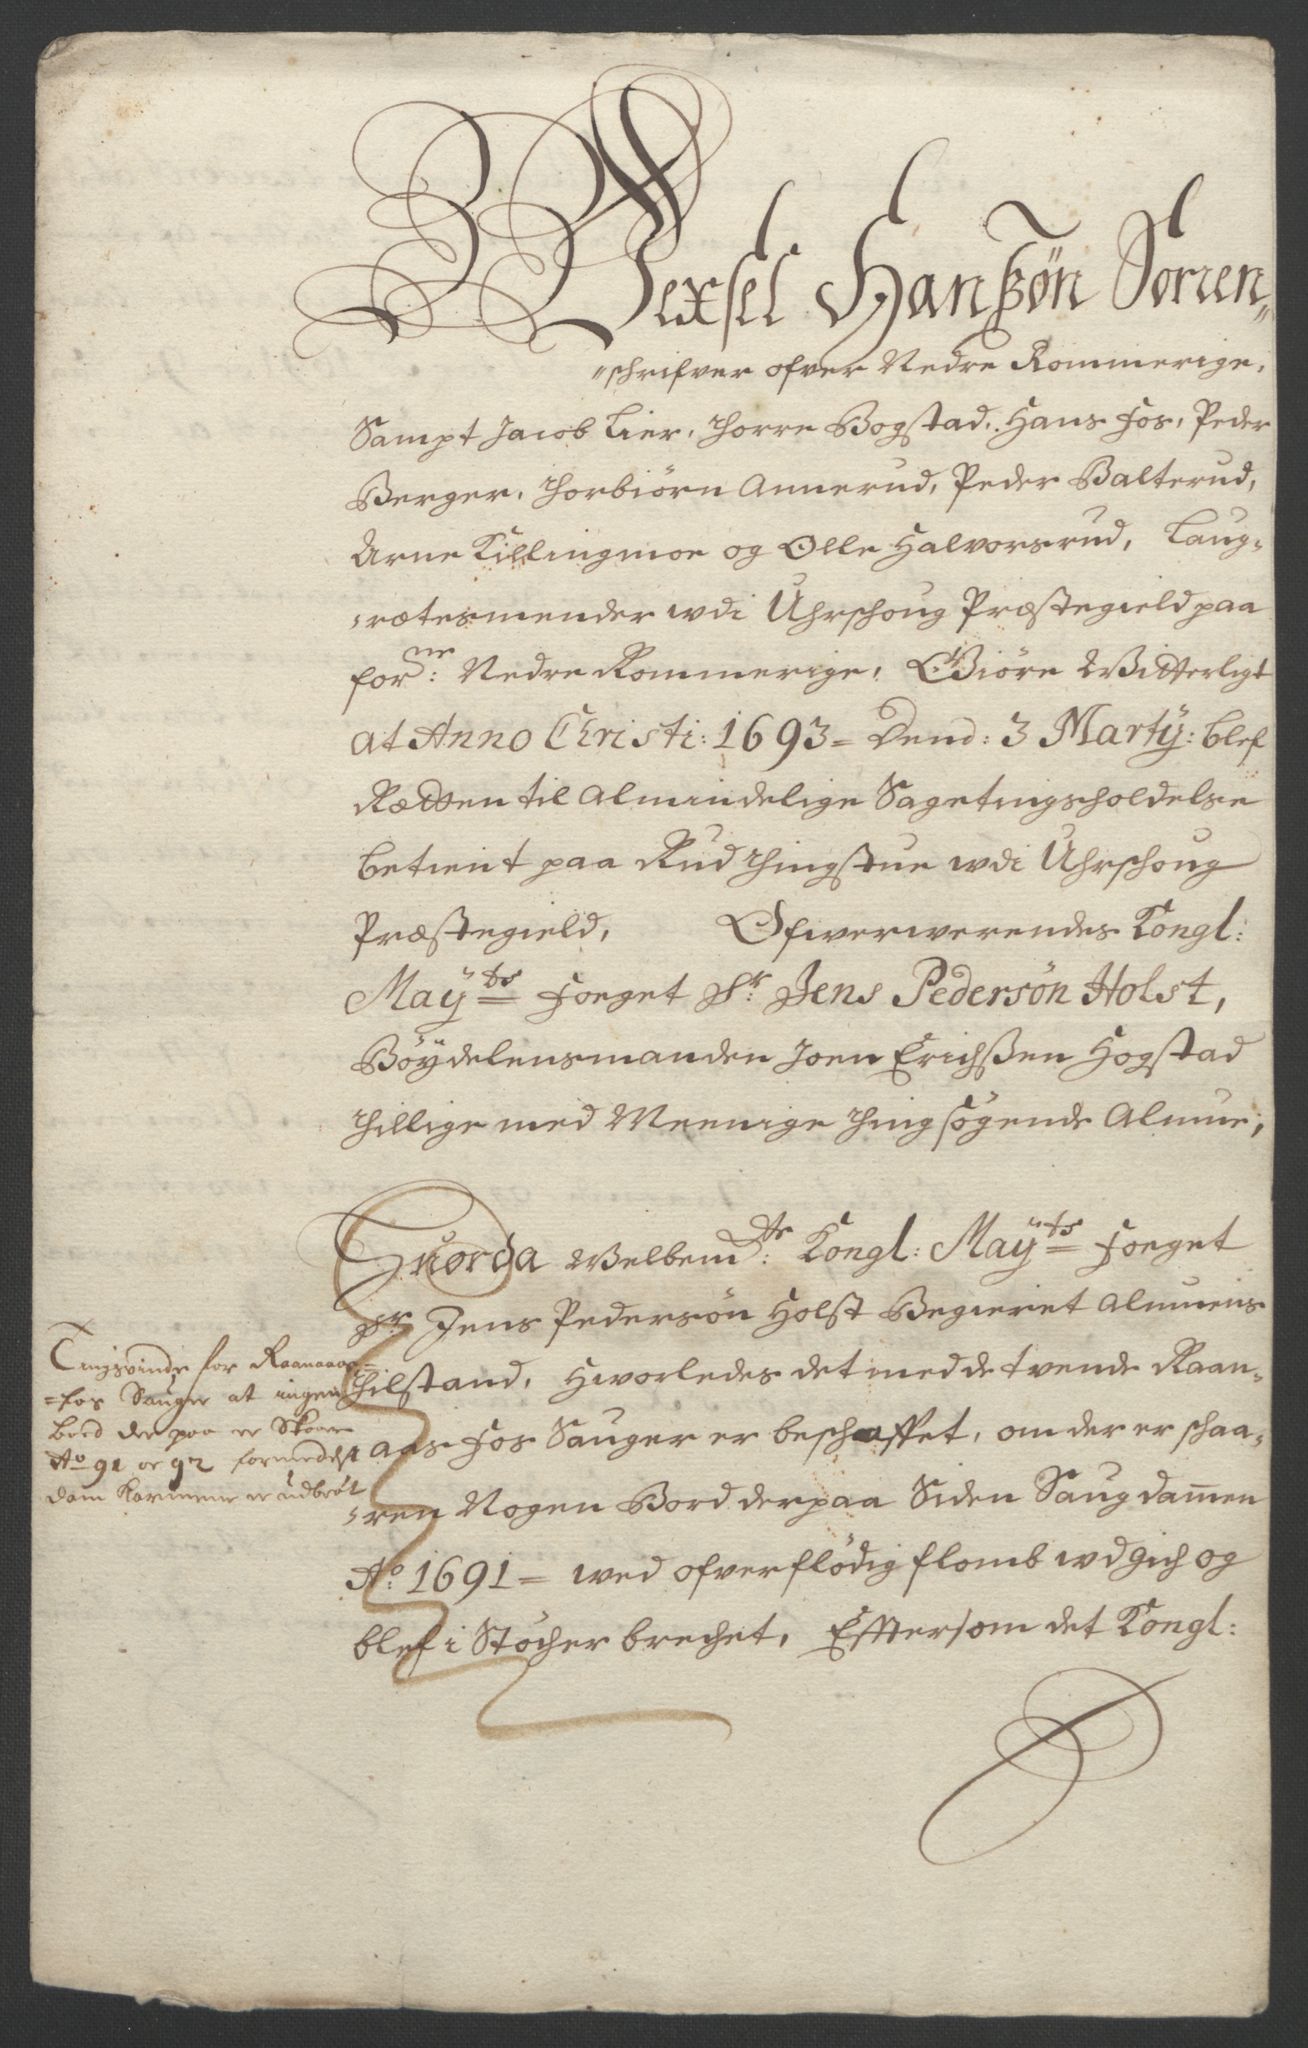 Wexsel Hanßön Sorren„
„schrifver ofver Nedre Rommerige,
Sampt Jacob Lier, Thorre Bogstad, Hans Fos, Peder
Berger, Thorbiörn Annerud, Peder Balterud,
Arne Killingmoe og Olle Halvorsrud, Laug„
„rætesmender wdi Uhrschoug Præstegield paa
forne: Nedre Rommerige, Giöre Witterligt
at Anno Christi: 1693 = Dend: 3 Martÿ: blef
Rætten til Almindelige Sagetingsholdelse
betient paa Rud Thingstue wdi Uhrschoug
Præstegield, Ofwerwerendes Kongl:
Maÿts Foeget Sr: Jens Pedersön Holst,
Böÿdelensmanden Joen Erichßen Hogstad
Thillige med Meenige Thingsögende Almue,
Hvorda Welbemte: Kongl: Maÿts Foeget
Sr Jens Pedersön Holst Begieret Almuens
Thilstand, Hworledes det med de tvende Raan„
aas Fos Sauger er beschaffet, om der er schaa„
„ren Nogen Bord derpaa Siden Saugdam̄en
Ao: 1691 = wed ofverflödig flomb wdgich og
blef i Stöcher brechet, Efftersom det Kongl:
Tingsvinde for Raanaaas=
=fos Sauger at ingen
bord der paa er Skaaren
Ao 91 oc 92 formedelst
dam Karmene er udbröt